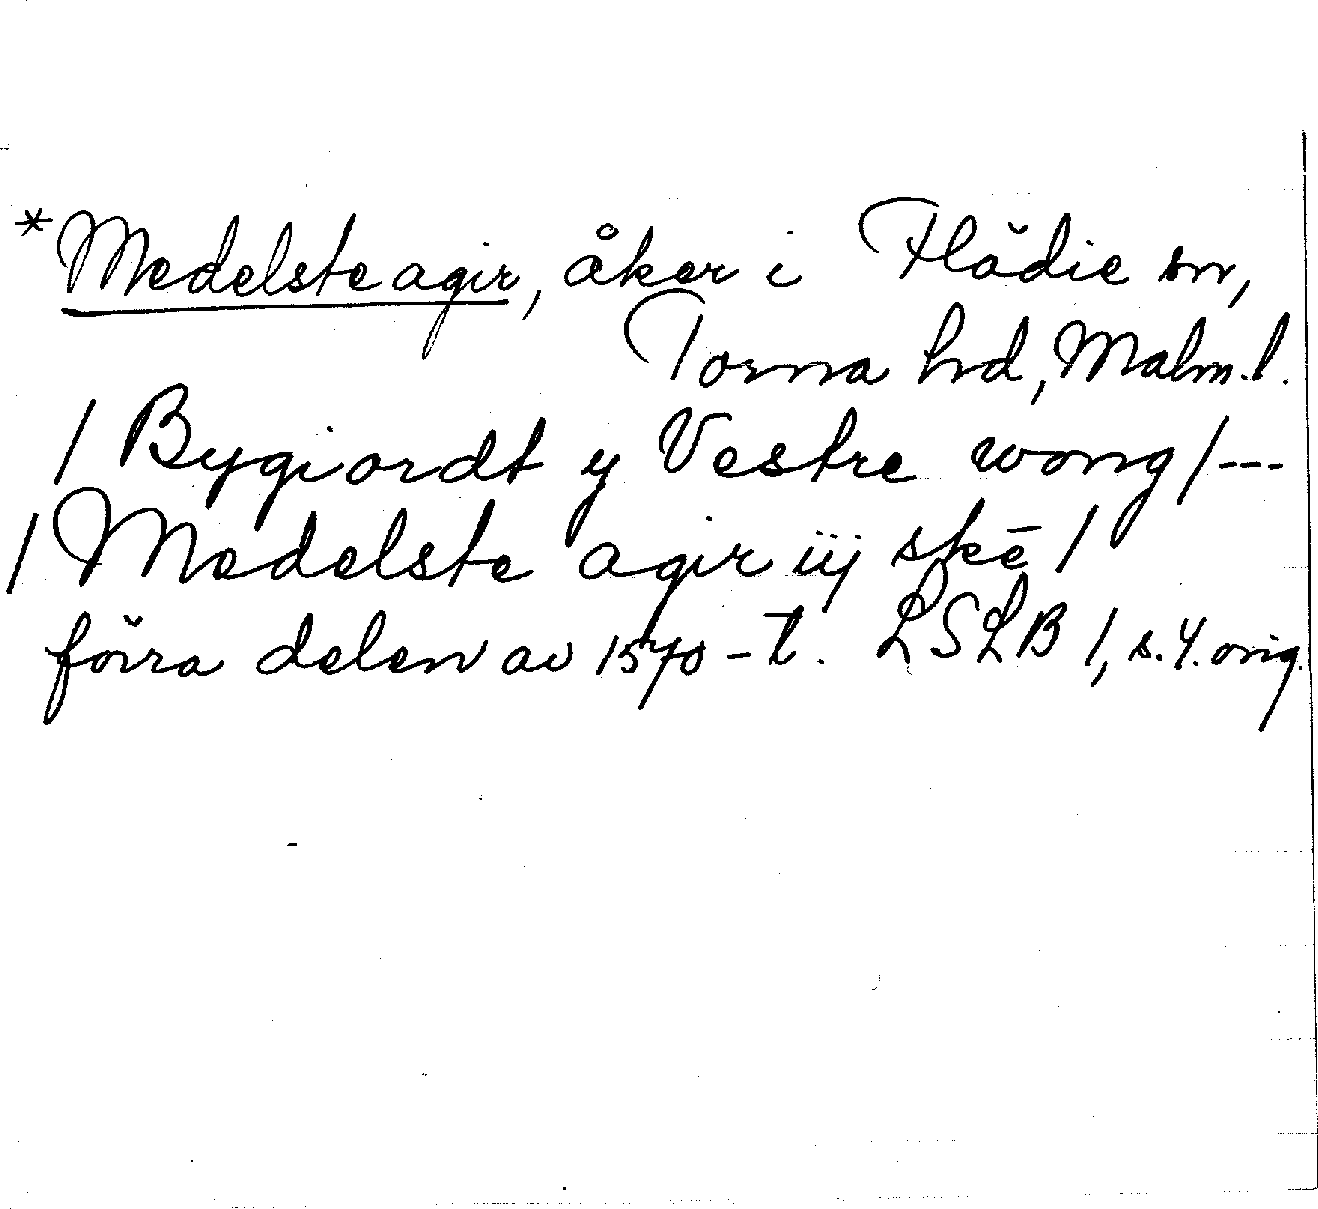 *Medelste agir, åker i Flädie sn,
Torna hd, Malm.l.
/ Bygiordt y Vestre wong / ---
/ Medelste agir iij skē /
förra delen av 1570-t. LSLB 1, s. 4. orig.